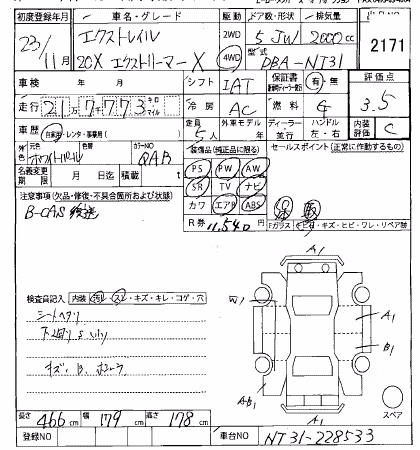 初度登録年月 車名・グレード 駆動 ドア数・形状 排気量
23/11月 エクストレイル 20X エクストリーマーX 2WD 4WD 5 JW 2000cc 2171
型式 DBA-NT31
車検 年 月 シフト IAT 保証書 有・無 評価点 3.5
走行 21万7,773 キロ マイル 冷房 AC 燃料 G
車歴 自家用・レンタ・事業用( ) 定員 5人 外車モデル 年 ディーラー 並行 ハンドル 左・右 内装評価 C
外 元色 ホワイトパール 色替 カラーNO QAB 装備品(純正品に限る) セールスポイント(正常に作動するもの)
名義変更期限 月 日迄 積載量 t PS PW AW
注意事項(欠品・修復・不具合箇所および状態) SR TV ナビ
B-CAS後送 カワ エアB ABS
R券 11,540 Fガラス
A1
検査員記入 内装 汚れ・スレ・キズ・キレ・コゲ・穴
シートヘタリ W1 A1
B1
キズ、B、
A・B1
A1 スペア
長さ 466cm 幅 179cm 高さ 178cm
登録NO 車台NO NT31-228533